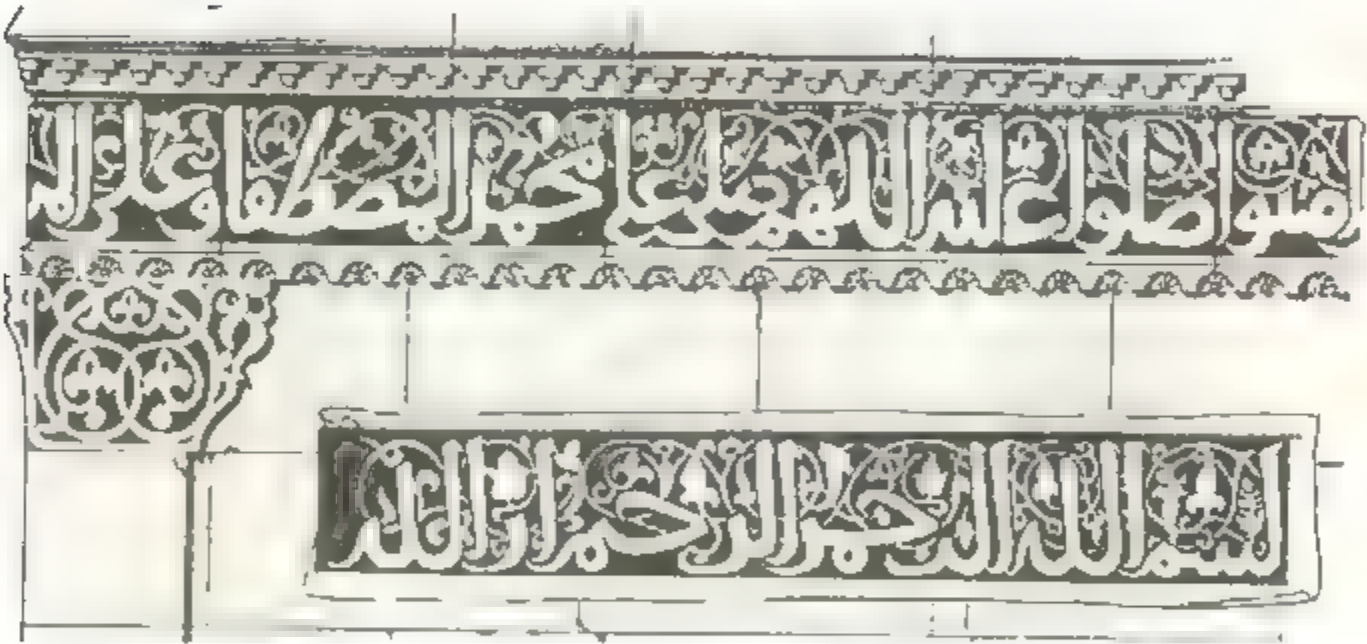 امنوا صلوا عليه اللهم صل على محمد المصطفا وعلي
بسم الله الرحمن الرحيم ان الله